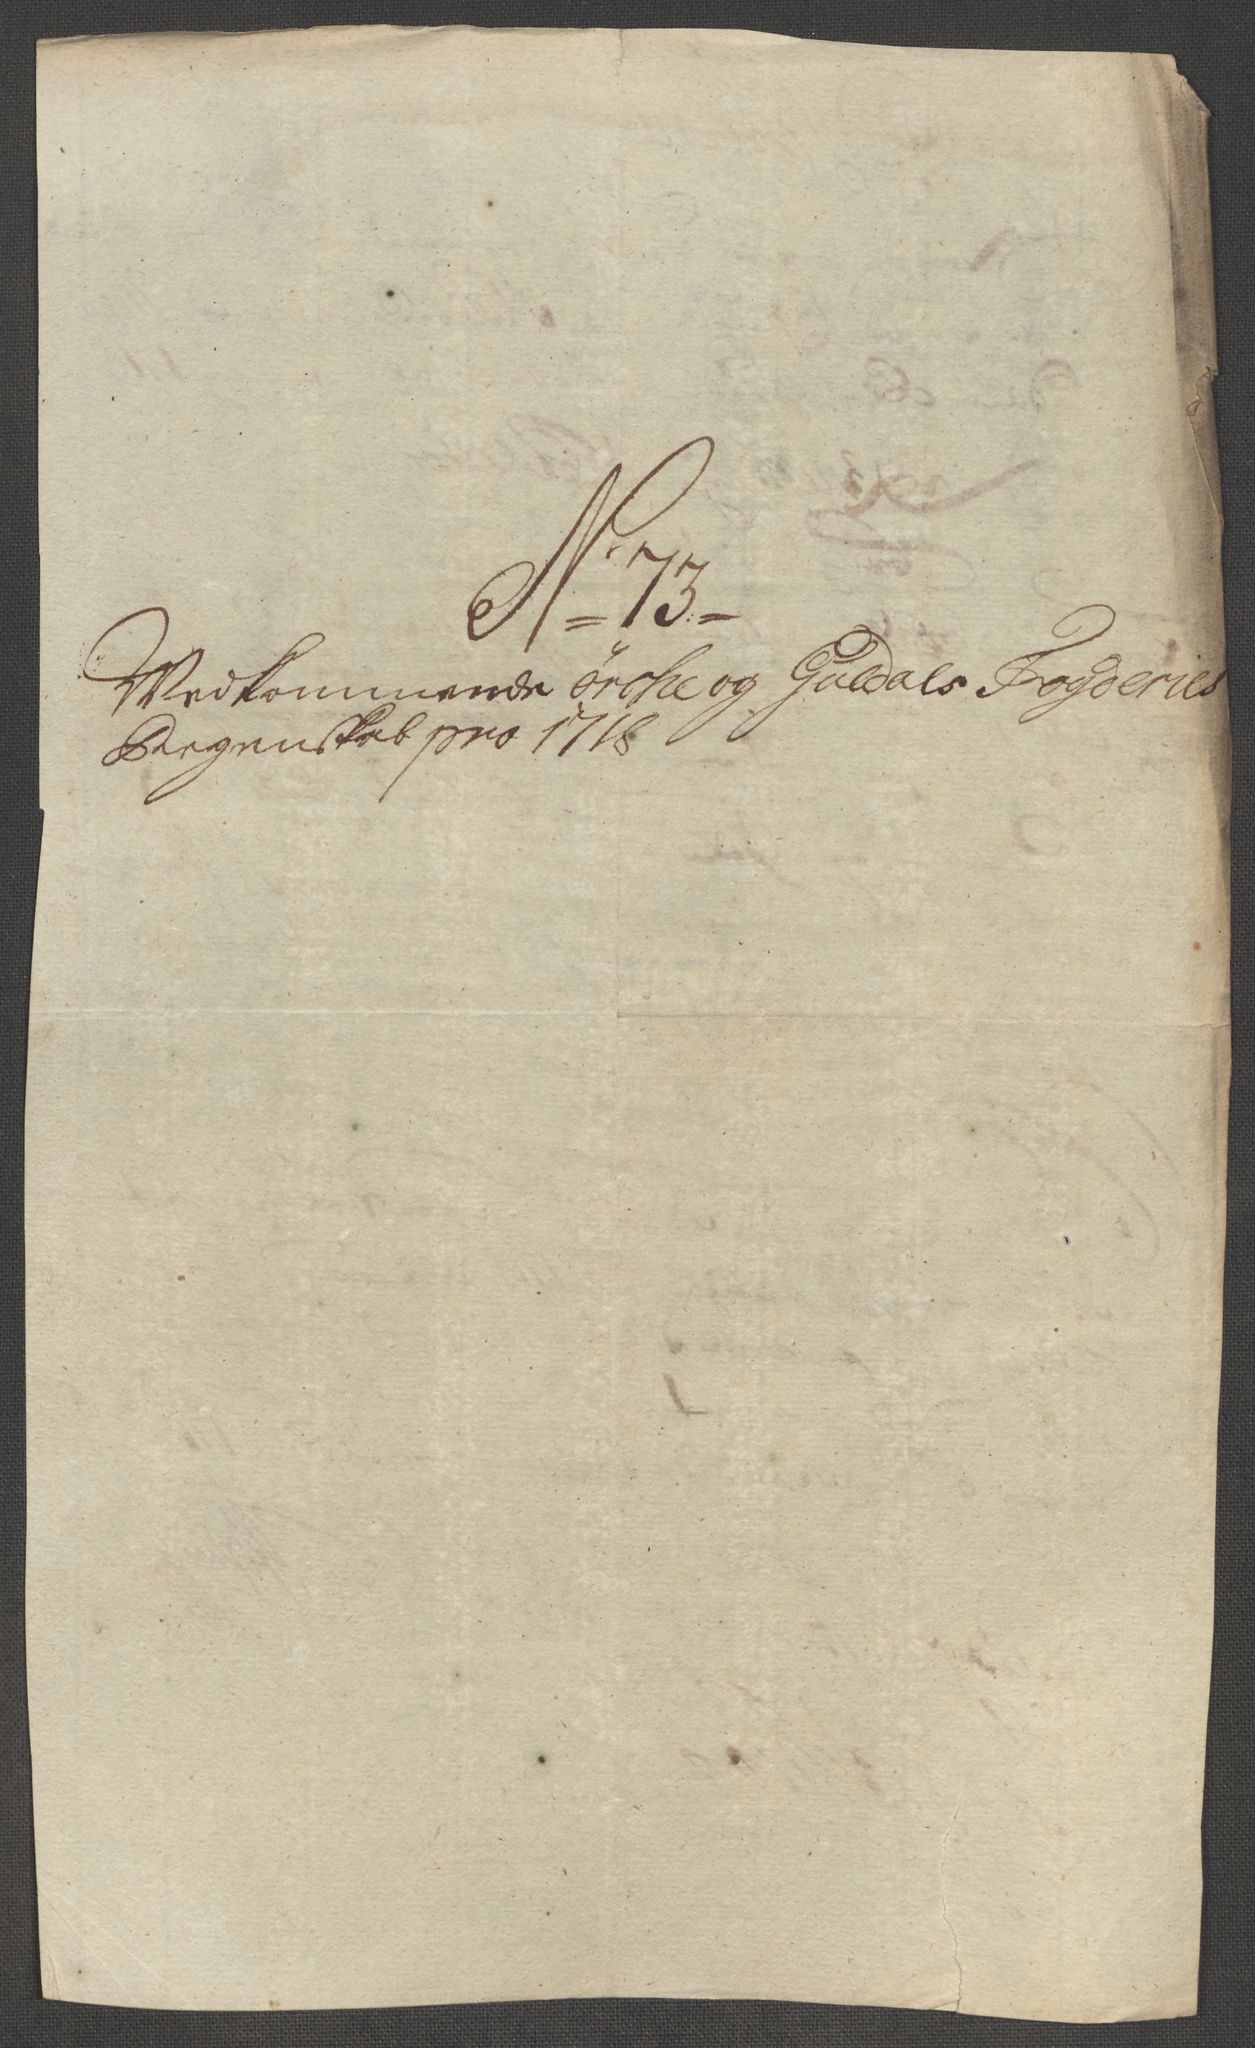 No = 73 =
Vedkommende örche og Guldals Fogderies
Regenskab pro 1718